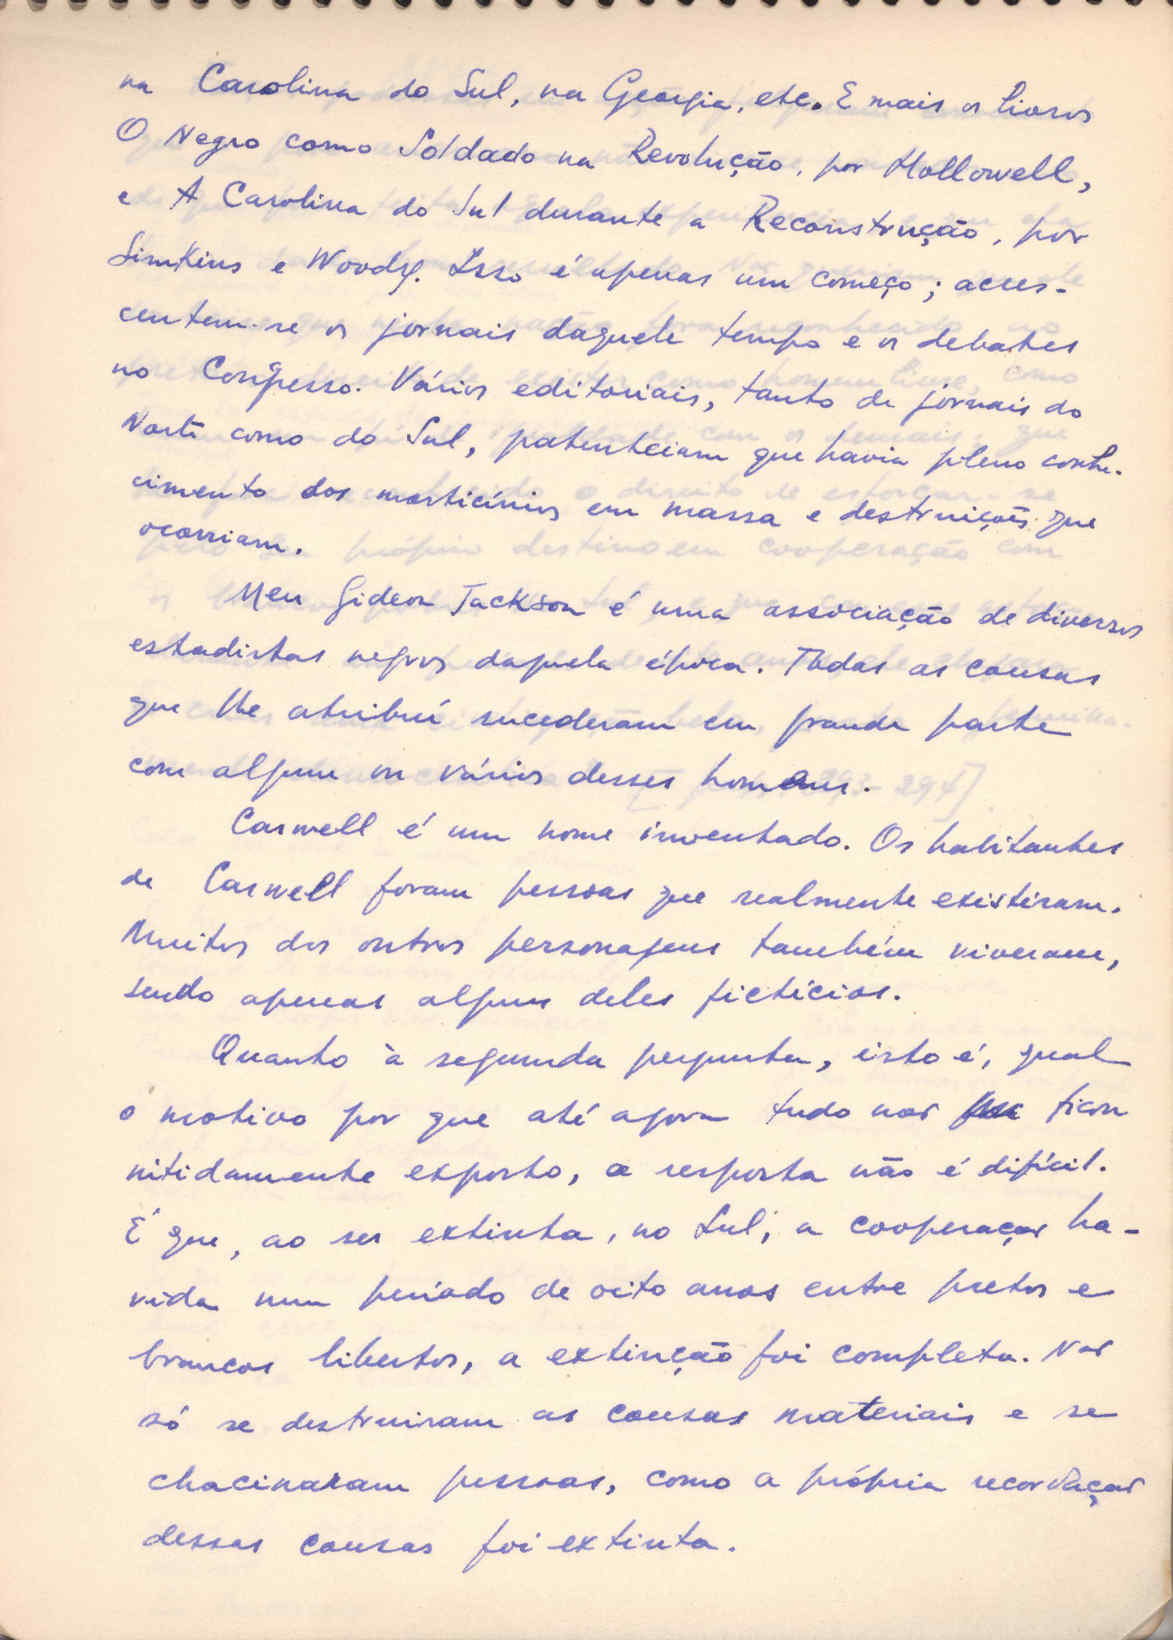 na Carolina do Sul, na Georgia, etc. E mais os livros
O Negro como Soldado na Revolução, por Hallowell,
e A Carolina do Sul durante a Reconstrução, por
Simkins e Woody. Isso é apenas um começo; acres-
centem-se os jornais daquele tempo e os debates
no Congresso. Vários editoriais, tanto de jornais do
Norte como do Sul, patenteiam que havia pleno conhe-
cimento dos morticínios em massa e destruições que
ocorriam.
Meu Gideon Jackson é uma associação de diversos
estadistas negros daquela época. Todas as cousas
que lhe atribuí sucederam em grande parte
com algum ou vários desses homens.
Carwell é um nome inventado. Os habitantes
de Carwell foram pessoas que realmente existiram.
Muitos dos outros personagens também viveram,
sendo apenas alguns deles fictícios.
Quanto à segunda pergunta, isto é, qual
o motivo por que até agora tudo não ficou
nitidamente exposto, a resposta não é difícil.
É que, ao ser extinta, no Sul, a cooperação ha-
vida num período de oito anos entre pretos e
brancos libertos, a extinção foi completa. Não
só se destruiram as cousas materiais e se
chacinaram pessoas, como a própria recordação
dessas cousas foi extinta.